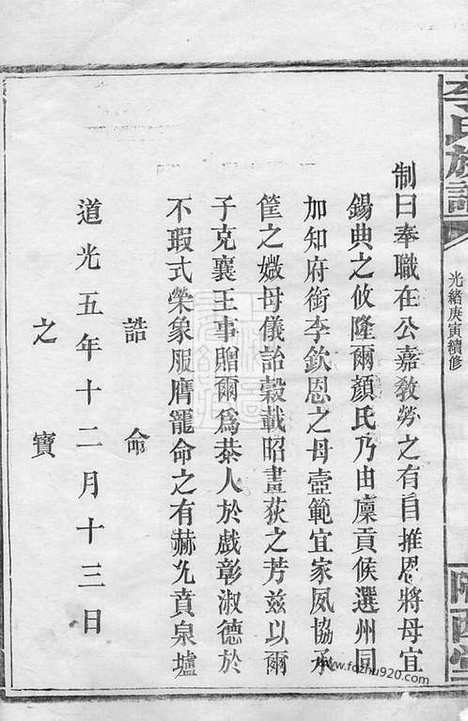 李氏族譜
光緒庚寅續修
隴西堂
制曰奉職在公嘉教勞之有自推恩將母宜
錫典之攸隆爾顏氏乃由廩貢候選州同
加知府銜李欽恩之母壼範宜家夙協承
筐之媺母儀詒穀載昭畫荻之芳茲以爾
子克襄王事贈爾爲恭人於戲彰淑德於
不瑕式榮象服膺寵命之有赫光賁泉壚
誥命
道光五年十二月十三日
之寶
www.fozhu920.com